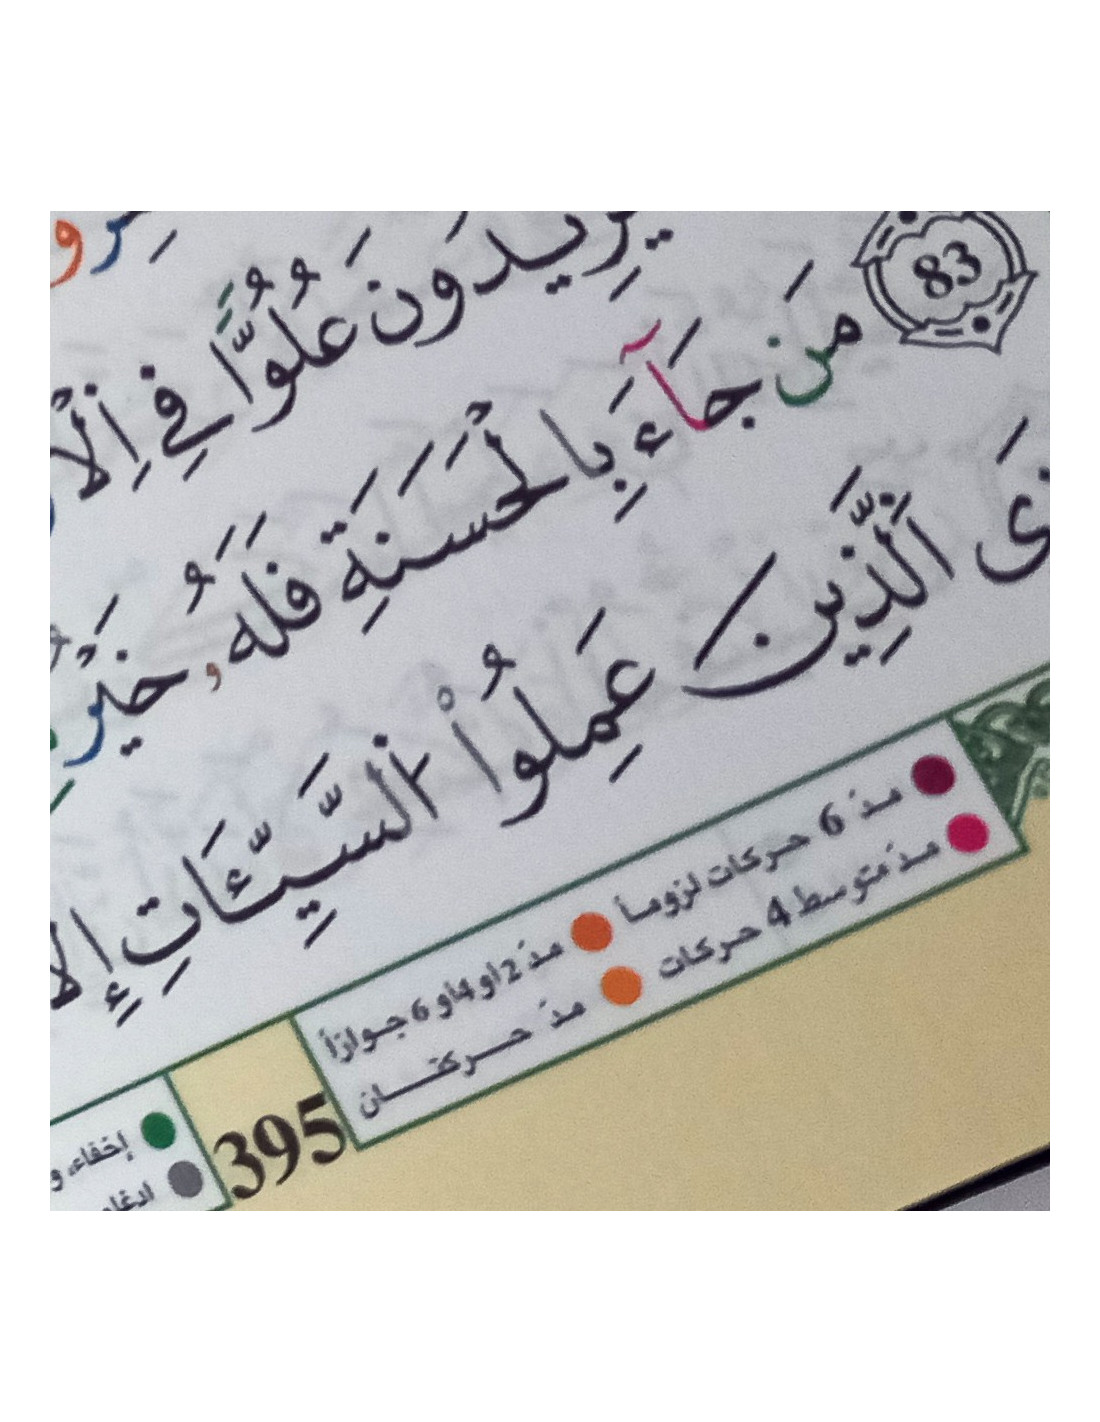 يُرِيدُونَ عُلُوًّا فِي
83 مَن جَآءَ بِالْحَسَنَةِ فَلَهُۥ خَيْرٌ
ٱلَّذِينَ عَمِلُوا۟ ٱلسَّيِّـَٔاتِ
مدّ 6 حركات لزوماً مدّ 2 او 4 او 6 جوازاً
مدّ متوسط 4 حركات مدّ حركتان
395
إخفاء، و